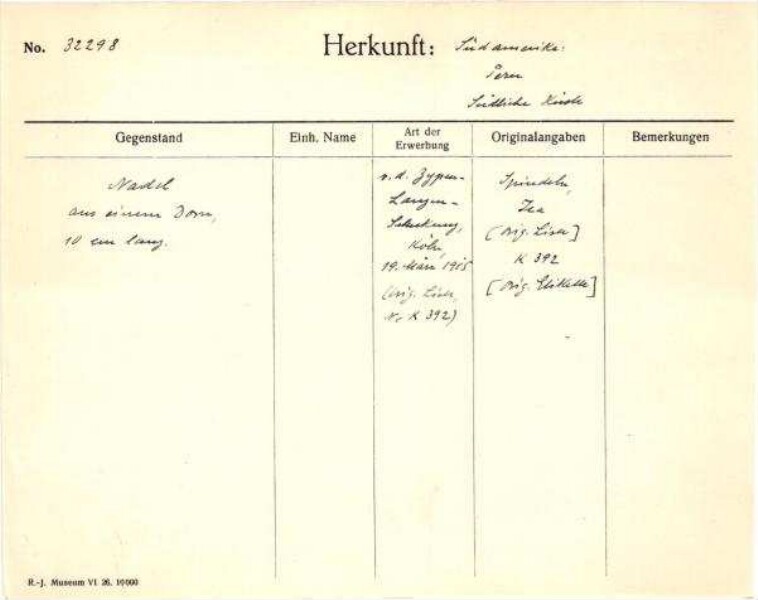 No. 32298
Herkunft: Südamerika:
Peru
Südliche Küste
Gegenstand
Einh. Name
Art der
Erwerbung
Originalangaben
Bemerkungen
Nadel
aus einem Dorn,
10 cm lang.
v. d. Zypen-
Langen-
Schenkung,
Köln,
19. März 1915
(Orig. Liste,
Nr K 392)
Spindeln,
Ica
[Orig. Liste]
K 392
[Orig. Etikette]
R.-J. Museum VI 26. 10000